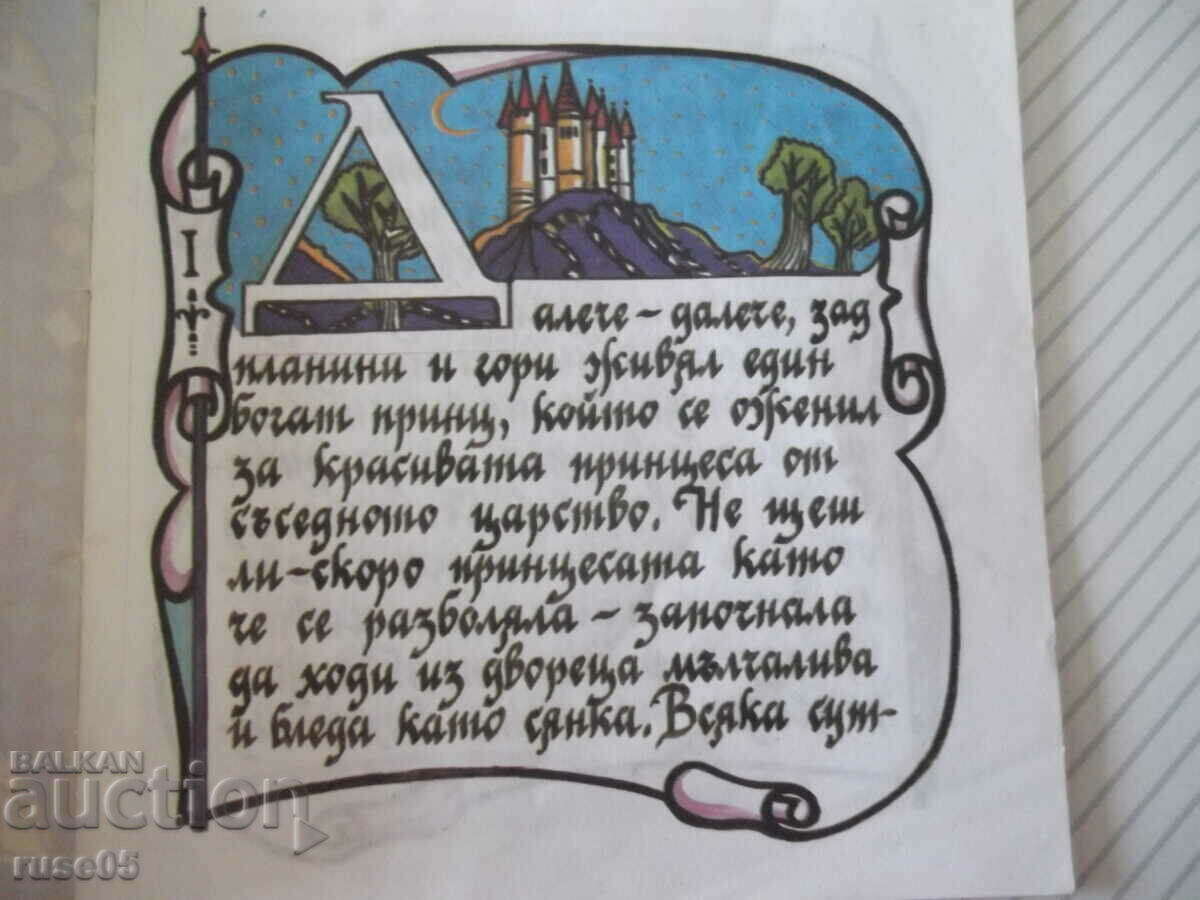 I
Далече – далече, зад
планини и гори живял един
богат принц, който се оженил
за красивата принцеса от
съседното царство. Не щеш
ли – скоро принцесата като
че се разболяла – започнала
да ходи из двореца мълчалива
и бледа като сянка. Всяка сут-
BALKAN
auction
ruse05